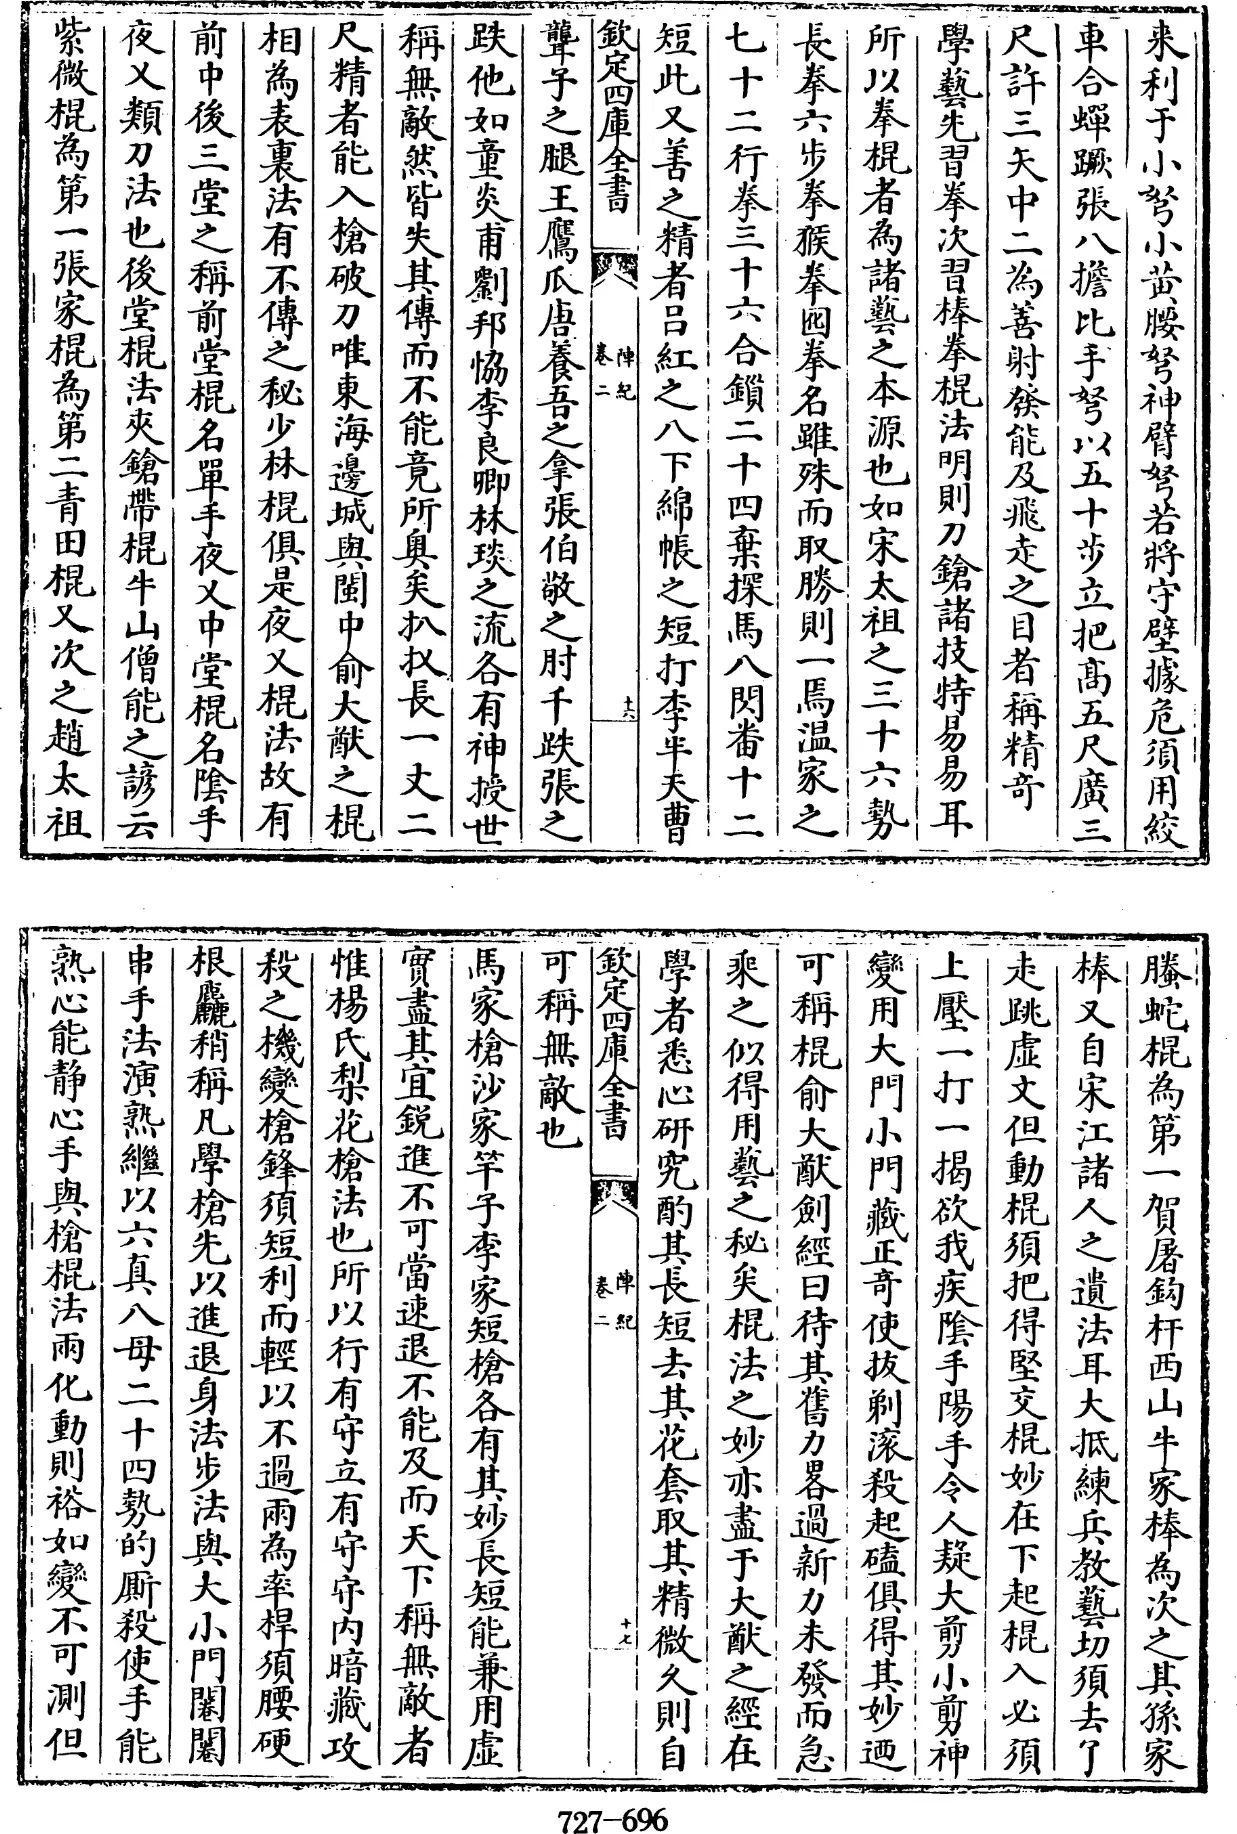 来利于小弩小黄腰弩神臂弩若將守壁據危須用絞
車合蟬蹶張八擔比手弩以五十步立把髙五尺廣三
尺許三矢中二為善射發能及飛走之目者稱精竒
學藝先習拳次習棒拳棍法明則刀鎗諸技特易易耳
所以拳棍者為諸藝之本源也如宋太祖之三十六勢
長拳六步拳猴拳囮拳名雖殊而取勝則一焉溫家之
七十二行拳三十六合鎖二十四棄探馬八閃番十二
短此又善之精者吕紅之八下綿帳之短打李半天曹
欽定四庫全書
陣紀
卷二
十六
聾子之腿王鷹爪唐養吾之拿張伯敬之肘千跌張之
跌他如童炎甫劉邦恊李良卿林琰之流各有神授世
稱無敵然皆失其傳而不能竟所奥矣扒扠長一丈二
尺精者能入槍破刀唯東海邊城與閩中俞大猷之棍
相為表裏法有不傳之秘少林棍俱是夜乂棍法故有
前中後三堂之稱前堂棍名單手夜乂中堂棍名隂手
夜乂類刀法也後堂棍法夾鎗帶棍牛山僧能之諺云
紫微棍為第一張家棍為第二青田棍又次之趙太祖
騰蛇棍為第一賀屠鈎杆西山牛家棒為次之其孫家
棒又自宋江諸人之遺法耳大抵練兵教藝切須去了
走跳虚文但動棍須把得堅交棍妙在下起棍入必須
上壓一打一揭欲我疾隂手陽手令人疑大剪小剪神
變用大門小門藏正竒使拔剃滚殺起磕俱得其妙迺
可稱棍俞大猷劍經曰待其舊力畧過新力未發而急
乘之似得用藝之秘矣棍法之妙亦盡于大猷之經在
學者悉心研究酌其長短去其花套取其精微久則自
欽定四庫全書
陣紀
卷二
十七
可稱無敵也
馬家槍沙家竿子李家短槍各有其妙長短能兼用虚
實盡其宜鋭進不可當速退不能及而天下稱無敵者
惟楊氏梨花槍法也所以行有守立有守守内暗藏攻
殺之機變槍鋒須短利而輕以不過兩為率桿須腰硬
根麤稍稱凡學槍先以進退身法步法與大小門圈圈
串手法演熟繼以六真八母二十四勢的厮殺使手能
熟心能静心手與槍棍法兩化動則裕如變不可測但
727-696